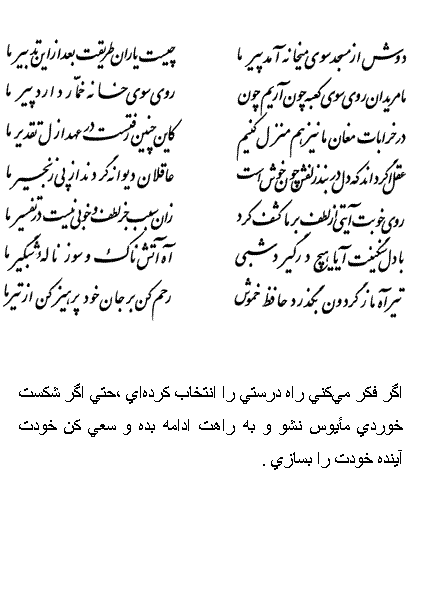 دوش از مسجد سوی میخانه آمد پیر ما چیست یاران طریقت بعد ازاین تدبیر ما
ما مریدان روی سوی کعبه چون آریم چون روی سوی خانه خمّار دارد پیر ما
در خرابات مغان ما نیز هم منزل کنیم کاین چنین رفتست در عهد ازل تقدیر ما
عقل اگر داند که دل در بند زلفش چون خوش است عاقلان دیوانه گردند از پی زنجیر ما
روی خوبت آیتی از لطف بر ما کشف کرد زان سبب جز لطف و خوبی نیست در تفسیر ما
با دل سنگینت آیا هیچ در گیرد شبی آه آتش ناک و سوز ناله شبگیر ما
تیر آه ما ز گردون بگذرد حافظ خموش رحم کن بر جان خود پرهیز کن از تیر ما
اگر فکر مي‌کني راه درستي را انتخاب کرده‌اي ،حتي اگر شکست
خوردي مأيوس نشو و به راهت ادامه بده و سعي کن خودت
آينده خودت را بسازي .